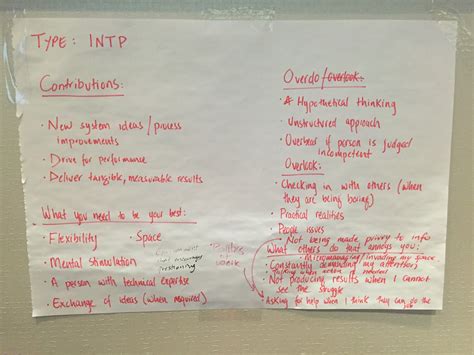 TYPE: INTP
Contributions:
· New system ideas/process
improvements
· Drive for performance
· Deliver tangible, measurable results
What you need to be your best:
· Flexibility
· Space
· Mental stimulation
· A person with technical expertise
· Exchange of ideas (when required)
Overdo/Overlook:
· Hypothetical thinking
· Unstructured approach
· Overbear if person is judged/
incompetent
Overlook:
· Checking in with others (when
they are being boring)
· Practical realities
· People issues
· Not being made privy to info
What others do that annoys you:
· Micromanaging/invading my space
· Constantly demanding my attention
· Talking when action is needed
· Not producing results when I cannot
see the struggle
· Asking for help when I think they can do the
job